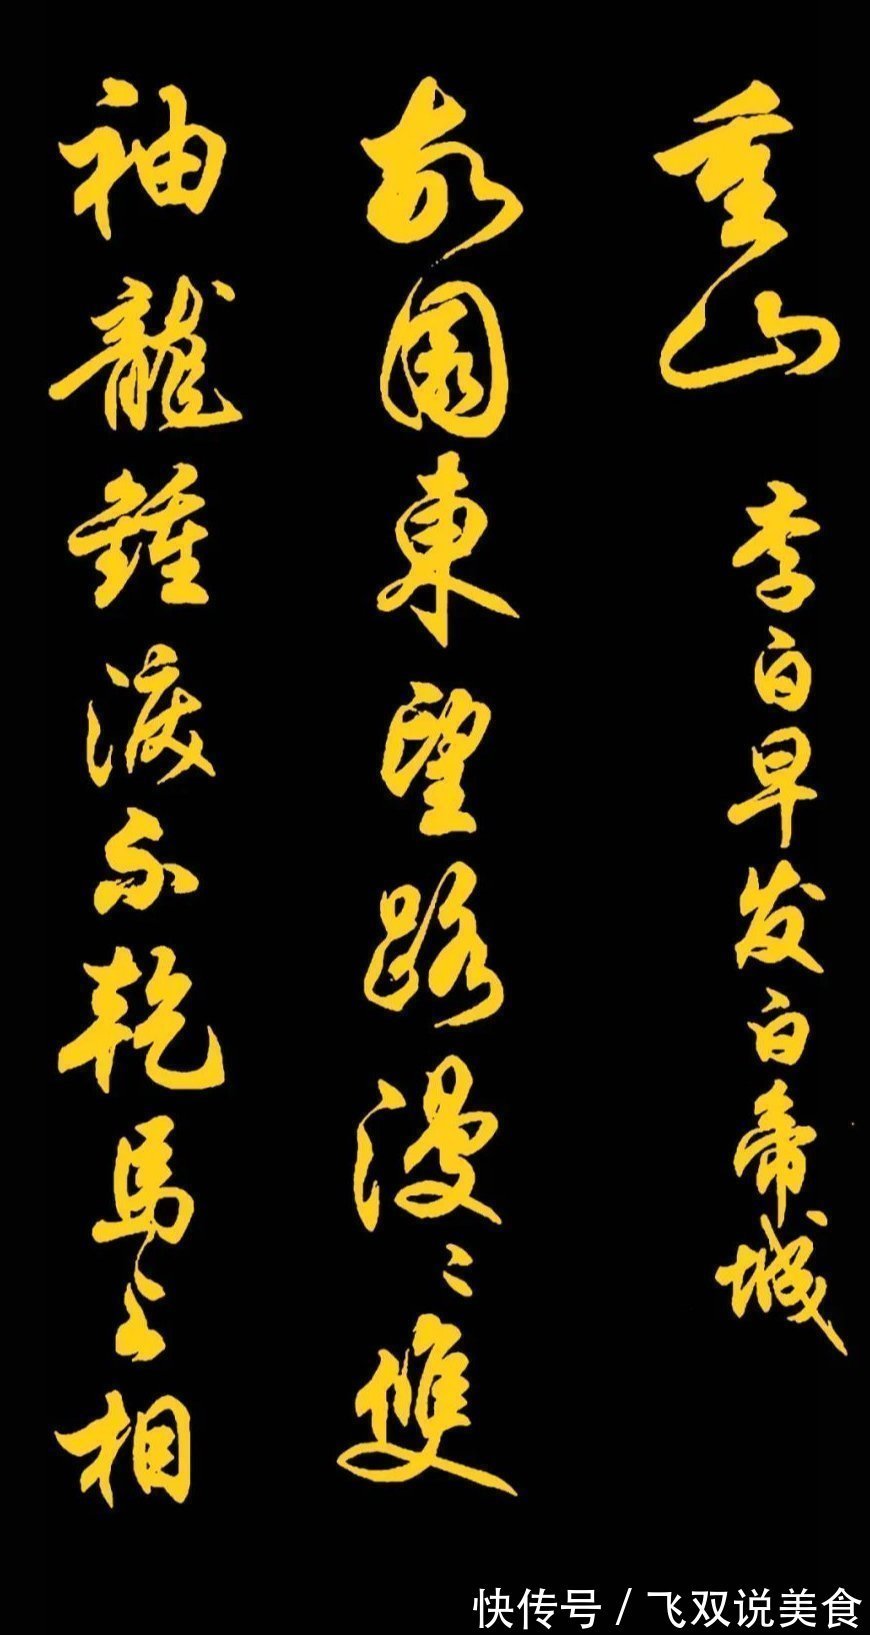 重山 李白早发白帝城
故園東望路漫〻雙
袖龍鍾淚不乾馬上相
快传号/飞双说美食